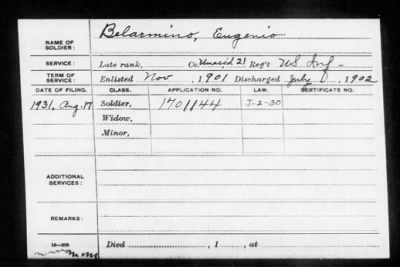 Belarmino, Eugenio
NAME OF SOLDIER:
SERVICE: Late rank, Co. Unasid 21 Reg't US Inf
TERM OF SERVICE: Enlisted Nov , 1901 Discharged July , 1902
DATE OF FILING. CLASS. APPLICATION NO. LAW. CERTIFICATE NO.
1931, Aug. 17 Soldier, 1701144 J-2-30
Widow,
Minor,
ADDITIONAL SERVICES:
REMARKS:
Died , 1 , at